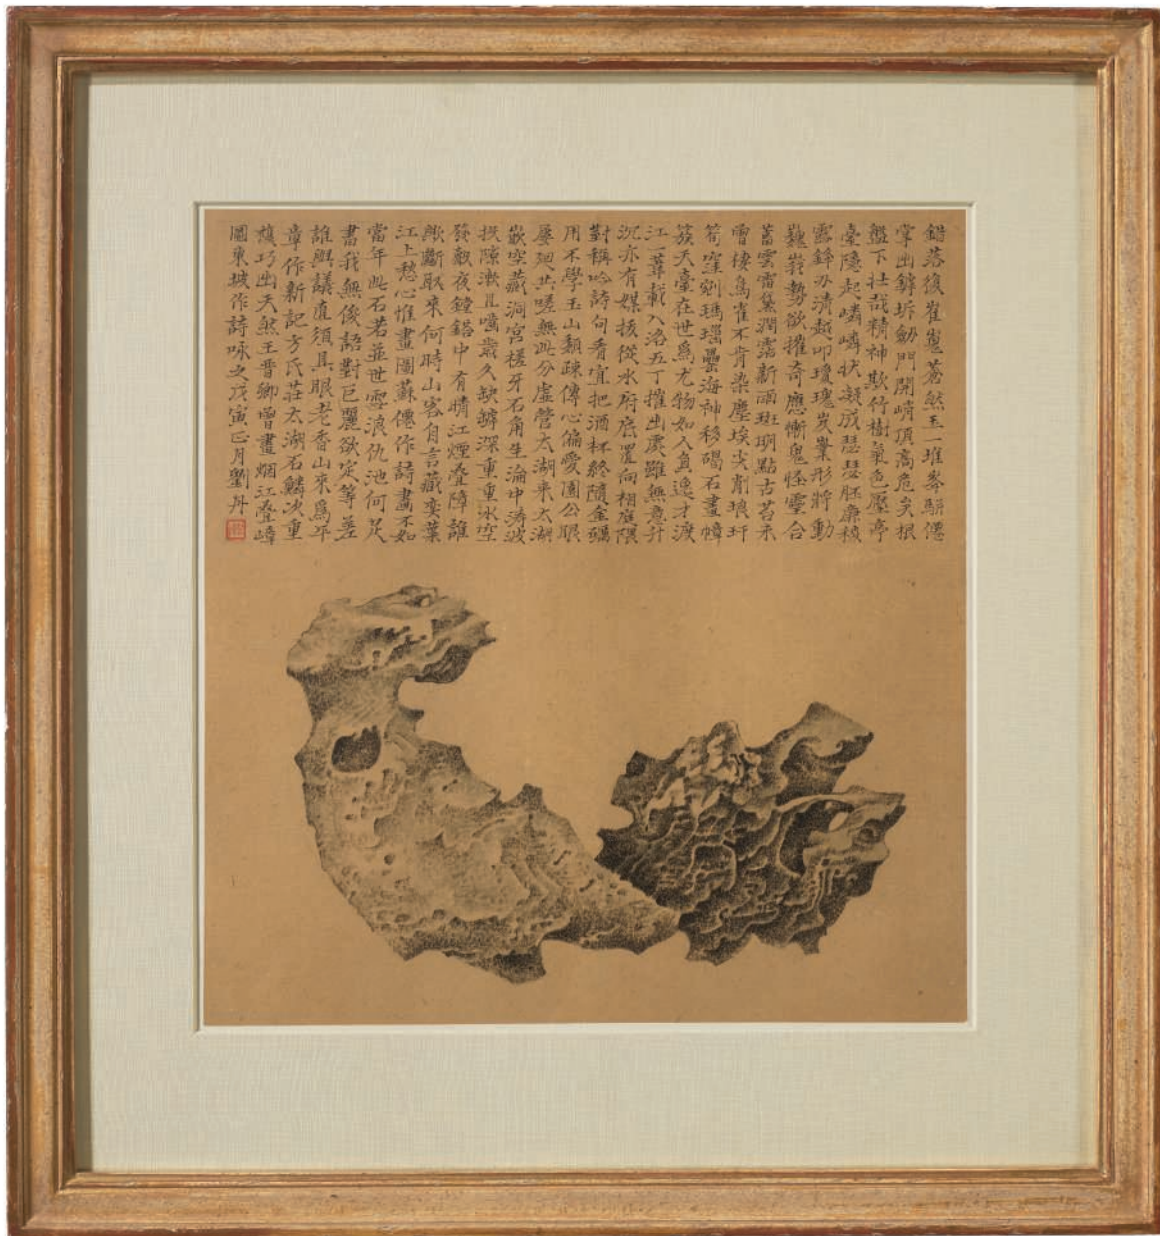 錯落復崔嵬蒼然玉一堆峯駢僊
掌出罅坼劒門開峭頂高危矣根
盤下壯哉精神欺竹樹氣色壓亭
臺隱起嶙嶙狀凝成瑟瑟胚廉稜
露鋒刃清越叩瓊瑰岌嶪形將動
巍峩勢欲摧奇應慚鬼怪靈合
蓄雲雷黛潤霑新雨斑明點古苔未
曾棲鳥雀不肯染塵埃尖削琅玕
筍窪剜瑪瑙罍海神移碣石畫幛
簇天臺在世爲尤物如人負逸才渡
江一葦載入洛五丁推出處雖無意升
沉亦有媒拔從水府底置向相庭隈
對稱吟詩句看宜把酒杯終隨金礪
用不學玉山頽疎傅心偏愛園公眼
屢廻共嗟無此分虛管太湖來太湖
嵌空藏洞宮槎牙石角生淪中濤波
投隙漱且嚙歲久缺罅深重重水空
發轂夜鐘鎝中有晴江煙疊障誰
歟斷取來何時山客自言藏奕葉
江上愁心惟畫圖蘇僊作詩畫不如
當年此石若並世雪浪仇池何足
書我無俊語對巨麗欲定等差
誰與議直須具眼老香山來爲平
章作新記方氏莊太湖石鱗次重
複巧出天然王晉卿曾畫烟江疊嶂
圖東坡作詩咏之戊寅正月劉丹